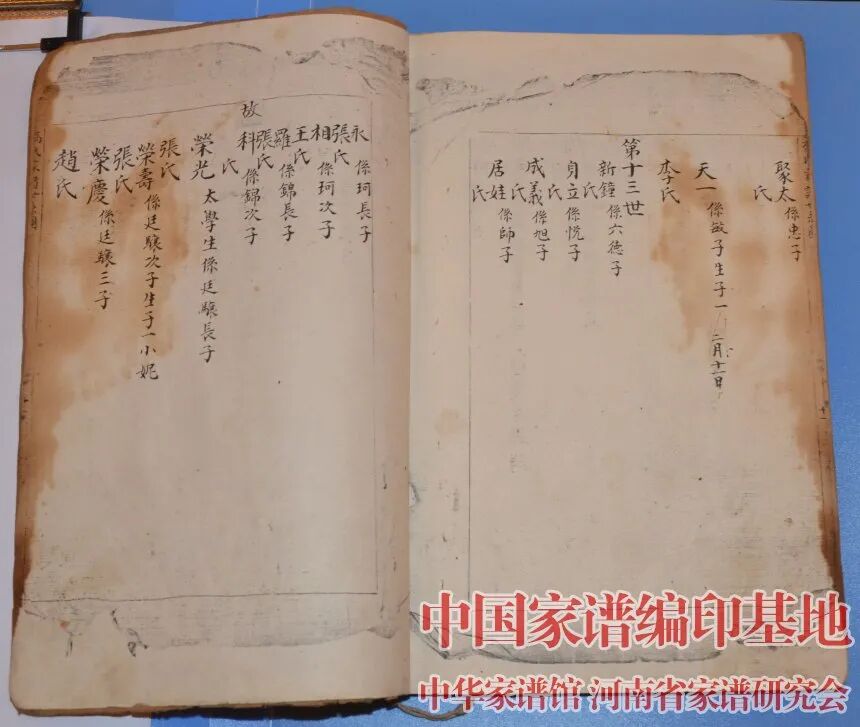 聚太 係忠子
氏
天一 係子生子一 二月十二日
李氏
第十三世
新鐘 係六德子
氏
貞立 係悅子
氏
成義 係旭子
氏
居娃 係師子
氏
永 係珂長子
張氏
相 係珂次子
王氏
羅 係錦長子
張氏
故
科 係錦次子
氏
榮光 太學生係廷驤長子
張氏
榮壽 係廷驤次子生子一小妮
張氏
榮慶 係廷驤三子
趙氏
中国家谱编印基地
中华家谱馆 河南省家谱研究会